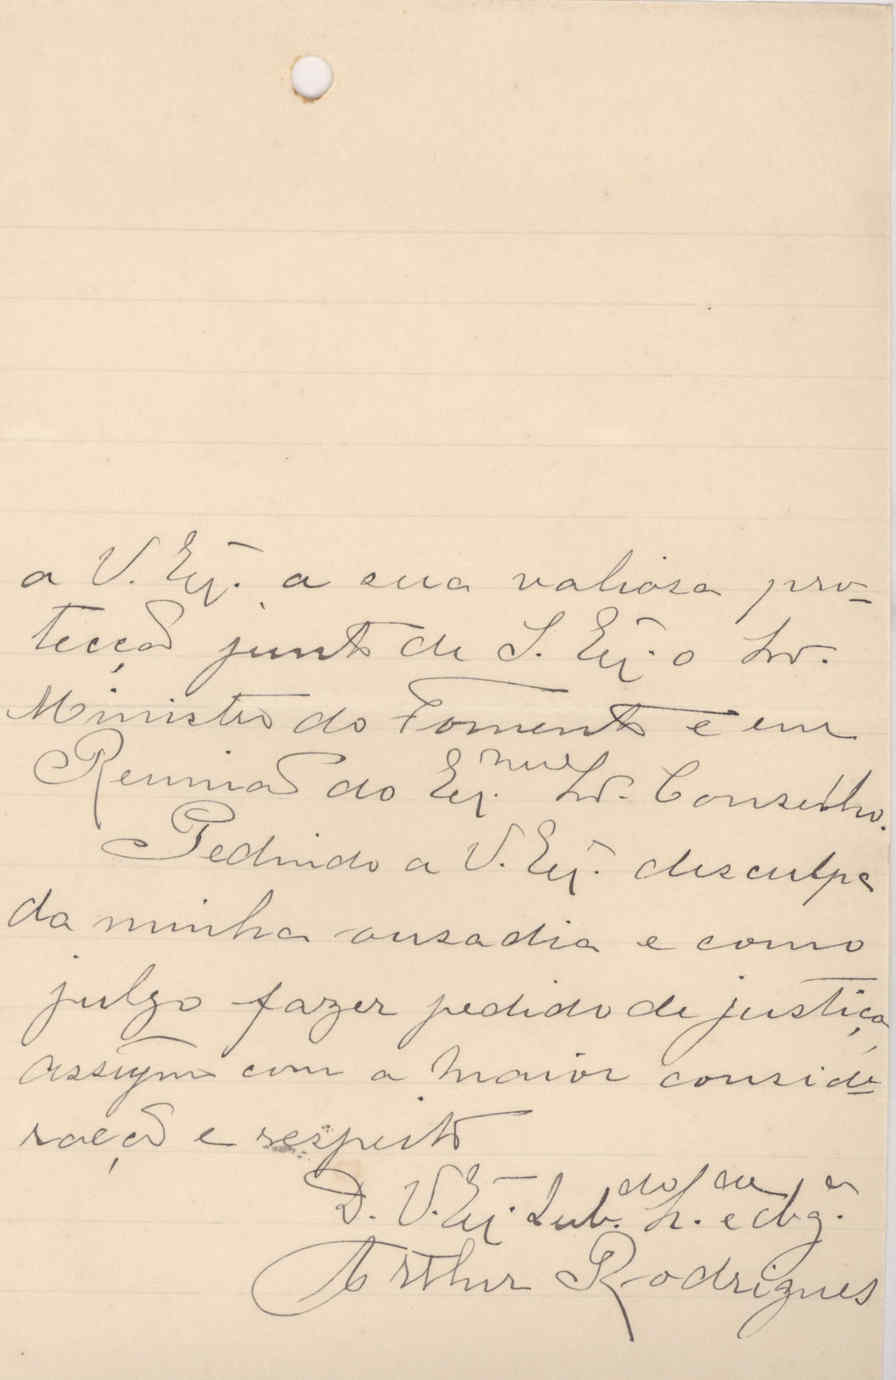 a V. Ex.ª a sua valiosa pro-
tecção junto de S. Ex.ª o Snr.
Ministro do Fomento e em
Reunião do Ex.mo Snr. Conselho.
Pedindo a V. Ex.ª desculpa
da minha ousadia e como
julgo fazer pedido de justiça,
assigno com a maior conside-
ração e respeito
D. V. Ex.ª Sub.do e
Arthur Rodrigues